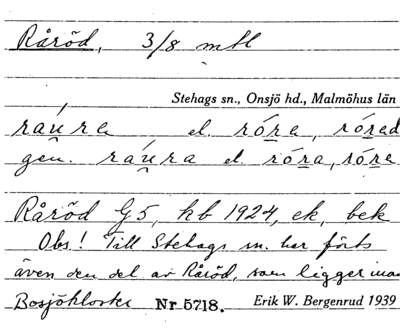 Råröd, 3/8 mtl
Stehags sn., Onsjö hd., Malmöhus län
raúra el. róra, róred
gen. raúra el. róra, róra
Råröd G5, kb 1924, ek, bek
Obs.! Till Stehags sn. har förts
även den del av Råröd, som ligger inom
Bosjökloster Nr. 5718. Erik W. Bergenrud 1939